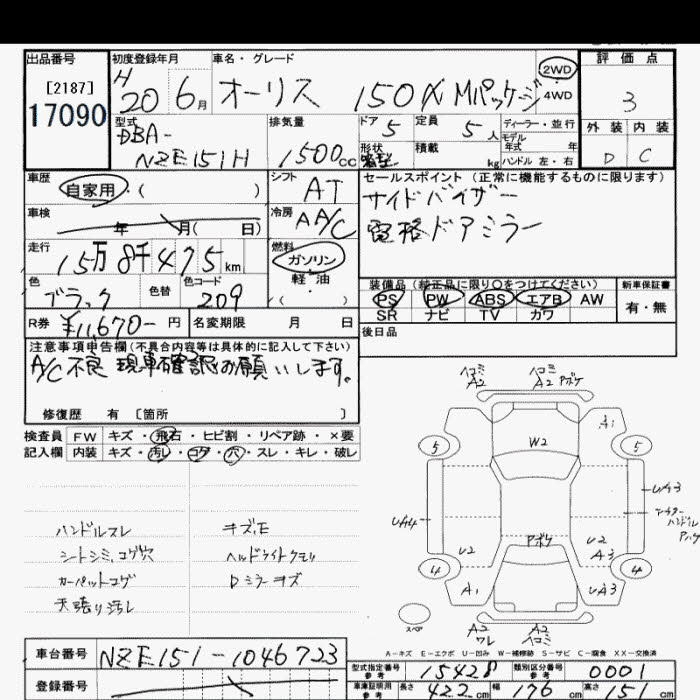 出品番号
[2187]
17090
初度登録年月
H
20 6月
車名・グレード
オーリス 150X Mパッケージ
2WD
4WD
評価点
3
外装 内装
D C
型式
DBA-
NZE151H
排気量
1500cc
ドア 5
定員 5人
形状
箱型
積載 kg
ディーラー・並行
モデル
年式 年
ハンドル 左・右
車歴
自家用・( )
シフト
AT
車検
年 月( 日)
冷房
AA/C
走行
15万8千475km
燃料
ガソリン
軽油
・( )
色
ブラック
色替
色コード
209
セールスポイント(正常に機能するものに限ります)
サイドバイザー
電格ドアミラー
装備品(純正品に限り○をつけてください)
PS PW ABS エアB AW
SR ナビ TV カワ
新車保証書
有・無
R券 ¥11,670- 円
名変期限 月 日
後日品
注意事項申告欄(不具合内容等は具体的に記入して下さい)
A/C不良 現車確認お願いします。
修復歴 有 〔箇所 〕
検査員 FW キズ・飛石・ヒビ割・リペア跡・×要
記入欄 内装 キズ・汚レ・コゲ・穴・スレ・キレ・破レ
ハンドルスレ
シートシミ、コゲ穴
カーペットコゲ
天張り汚レ
キズE
ヘッドライトクモリ
Dミラーキズ
ヘコミ
A2
ヘコミ
A2 Pボケ
A1
5
5
W2
UA3
UA4
Pボケ
U2
U2
A3
4
4
A1
UA3
スペア
A2
ワレ
A2
ヘコミ
A-キズ E-エクボ U-凹み W-補修跡 S-サビ C-腐食 XX-交換済
車台番号 NZE151-1046723
登録番号
型式指定番号
参考
15428
類別区分番号
参考
0001
車庫証明用
参考
長さ 422cm 幅 176cm 高さ 151cm